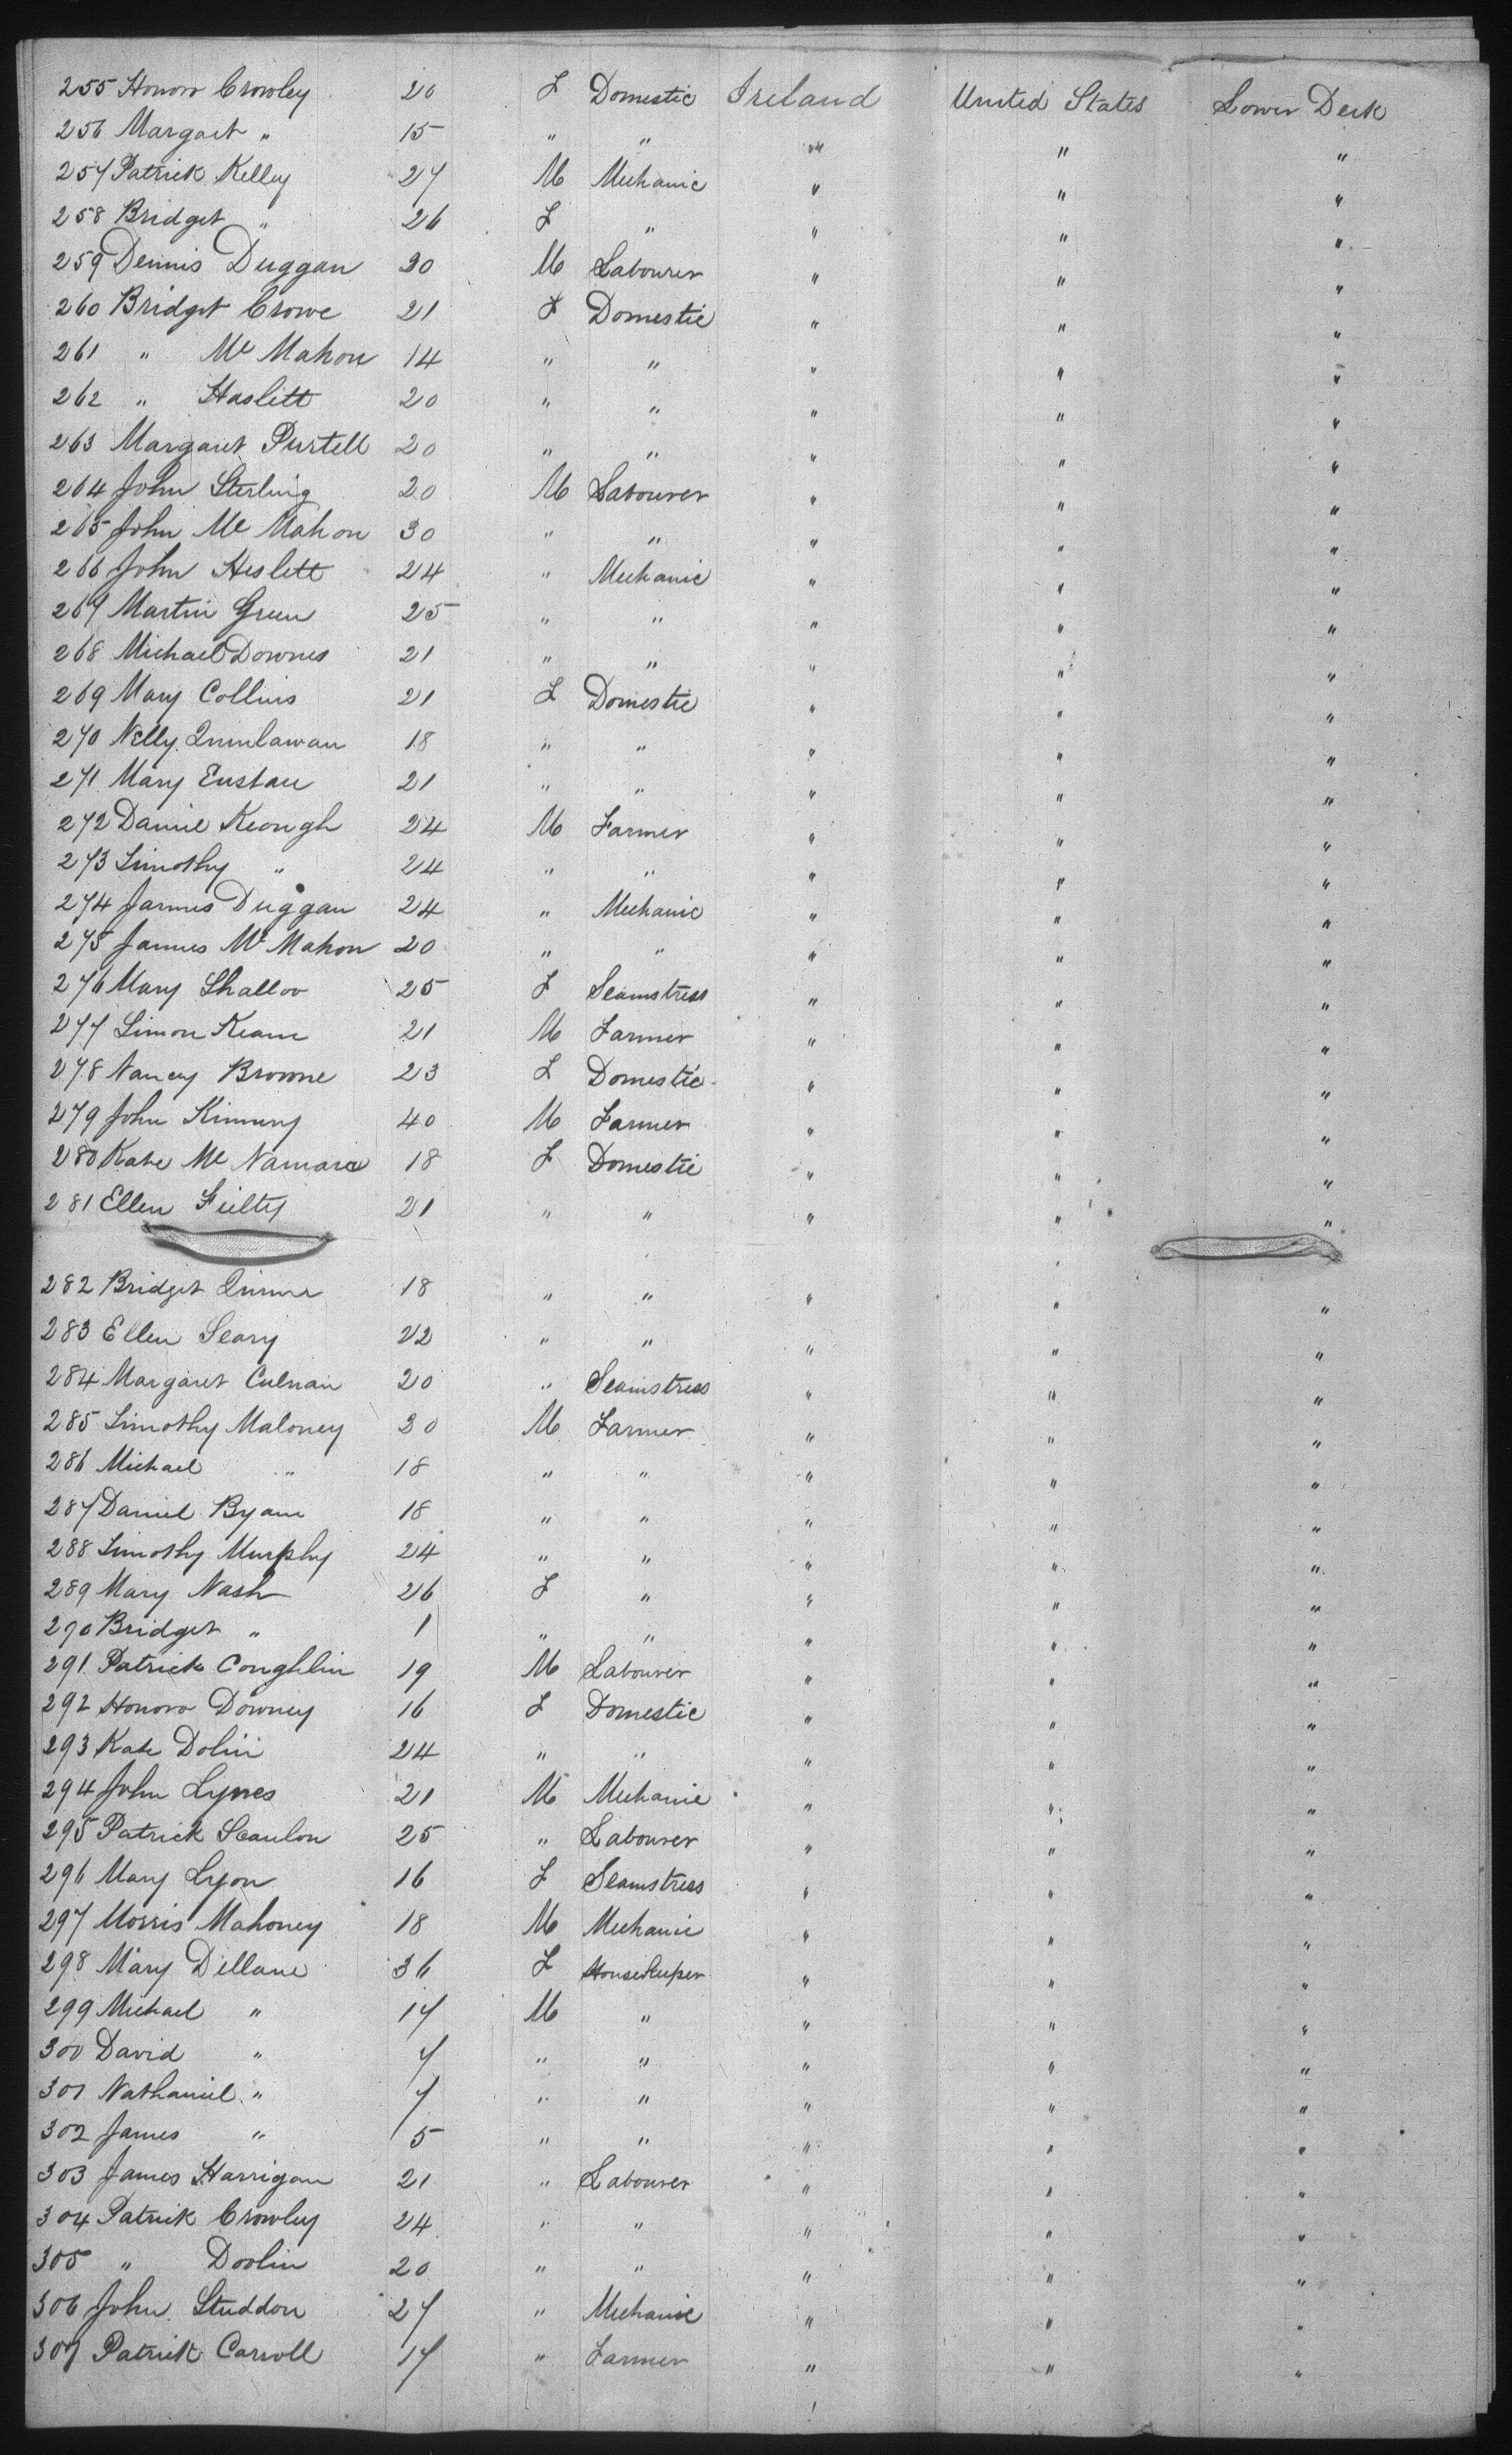 255 Honoro Crowley 20 F Domestic Ireland United States Lower Deck
256 Margaet " 15 " " " " "
257 Patrick Kelley 27 M Mechanic " " "
258 Bridget " 26 F " " " "
259 Dennis Duggan 30 M Labourer " " "
260 Bridget Crowe 21 F Domestic " " "
261 " Mc Mahon 14 " " " " "
262 " Haslett 20 " " " " "
263 Margaret Purtell 20 " " " " "
264 John Sterling 20 M Labourer " " "
265 John Mc Mahon 30 " " " " "
266 John Heslett 24 " Mechanic " " "
267 Martin Green 25 " " " " "
268 Michael Downes 21 " " " " "
269 Mary Collins 21 F Domestic " " "
270 Nelly Quinlawan 18 " " " " "
271 Mary Eustace 21 " " " " "
272 Daniel Keough 24 M Farmer " " "
273 Timothy " 24 " " " " "
274 James Duggan 24 " Mechanic " " "
275 James Mc Mahon 20 " " " " "
276 Mary Shalloo 25 F Seamstress " " "
277 Simon Keane 21 M Farmer " " "
278 Nancy Browne 23 F Domestic " " "
279 John Kimmey 40 M Farmer " " "
280 Kate Mc Namara 18 F Domestic " " "
281 Ellen Fielty 21 " " " " "
282 Bridget Quinne 18 " " " " "
283 Ellen Seary 22 " " " " "
284 Margaret Culnan 20 " Seamstress " " "
285 Timothy Maloney 30 M Farmer " " "
286 Michael " 18 " " " " "
287 Daniel Ryan 18 " " " " "
288 Timothy Murphy 24 " " " " "
289 Mary Nash 26 F " " " "
290 Bridget " 1 " " " " "
291 Patrick Coughlin 19 M Labourer " " "
292 Honoro Downey 16 F Domestic " " "
293 Kate Dolin 24 " " " " "
294 John Lynes 21 M Mechanic " " "
295 Patrick Scanlon 25 " Labourer " " "
296 Mary Lyon 16 F Seamstress " " "
297 Morris Mahoney 18 M Mechanic " " "
298 Mary Dillane 36 F HouseKeeper " " "
299 Michael " 17 M " " " "
300 David " 7 " " " " "
301 Nathaniel " 7 " " " " "
302 James " 5 " " " " "
303 James Harrigan 21 " Labourer " " "
304 Patrick Crowley 24 " " " " "
305 " Doolin 20 " " " " "
306 John Studdon 27 " Mechanic " " "
307 Patrick Carroll 17 " Farmer " " "